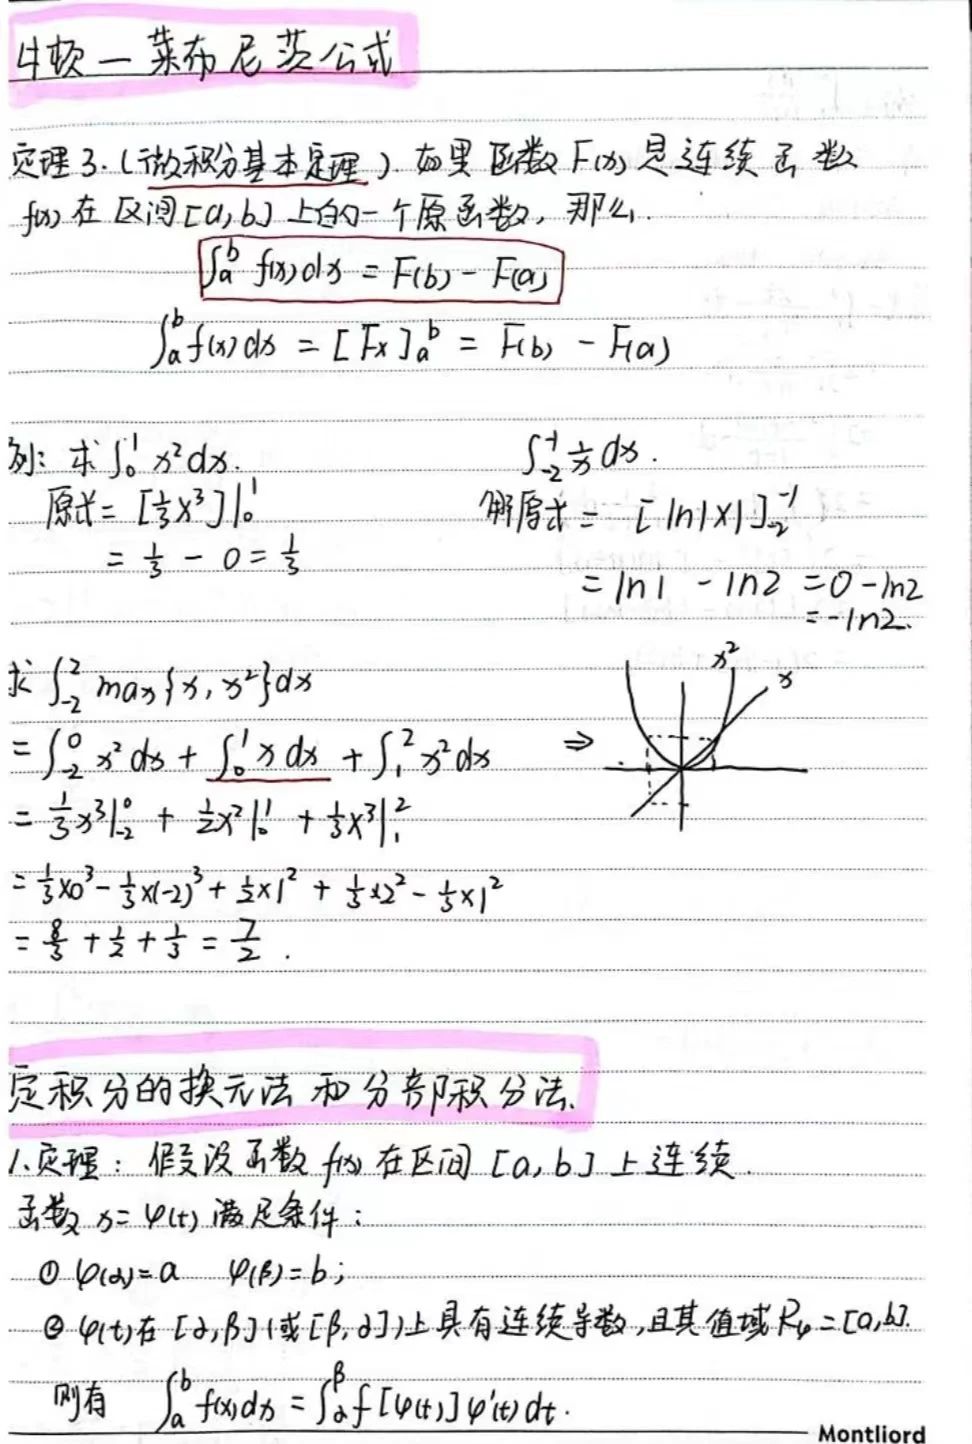 牛顿—莱布尼茨公式
定理3.(微积分基本定理).如果函数F(x)是连续函数
f(x)在区间[a,b]上的一个原函数,那么.
∫_a^b f(x)dx = F(b) - F(a)
∫_a^b f(x)dx = [Fx]_a^b = F(b) - F(a)
例: 求∫_0^1 x²dx. ∫_{-2}^{-1} 1/x dx.
原式= [1/3 x³]|_0^1 解原式= [ln|x|]_{-2}^{-1}
= 1/3 - 0 = 1/3
= ln1 - ln2 = 0 - ln2
= -ln2.
求∫_{-2}^2 max{x, x²}dx
x²
x
= ∫_{-2}^0 x²dx + ∫_0^1 x dx + ∫_1^2 x²dx ⇒
= 1/3 x³|_{-2}^0 + 1/2 x²|_0^1 + 1/3 x³|_1^2
= 1/3×0³ - 1/3×(-2)³ + 1/2×1² + 1/3×2² - 1/3×1²
= 8/3 + 1/2 + 1/3 = 7/2.
定积分的换元法和分部积分法.
1.定理: 假设函数f(x)在区间[a,b]上连续.
函数x=φ(t)满足条件:
① φ(α)=a φ(β)=b;
② φ(t)在[α,β](或[β,α])上具有连续导数,且其值域Rφ=[a,b].
则有 ∫_a^b f(x)dx = ∫_α^β f[φ(t)]φ'(t)dt.
Montliord